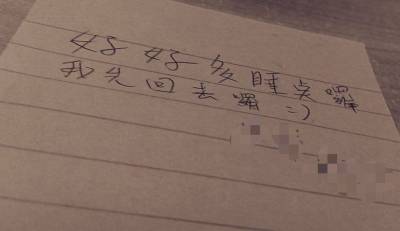 好好多睡点囉
我先回去囉 =)